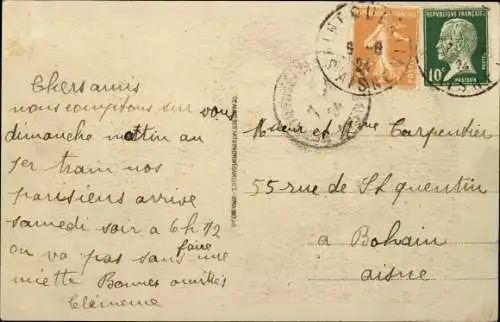 Chers amis
nous comptons sur vous
dimanche mattin au
1er train nos
parisiens arrive
samedi soir à 6h 1/2
on va pas sans faire une
miette Bonnes amitiés
Clémence
Mueur et Mme Carpentier
55 rue de St quentin
a Bohain
aisne
REPUBLIQUE FRANÇAISE
10c
PASTEUR
POSTES
ST QUENTIN
AISNE
9-8
24